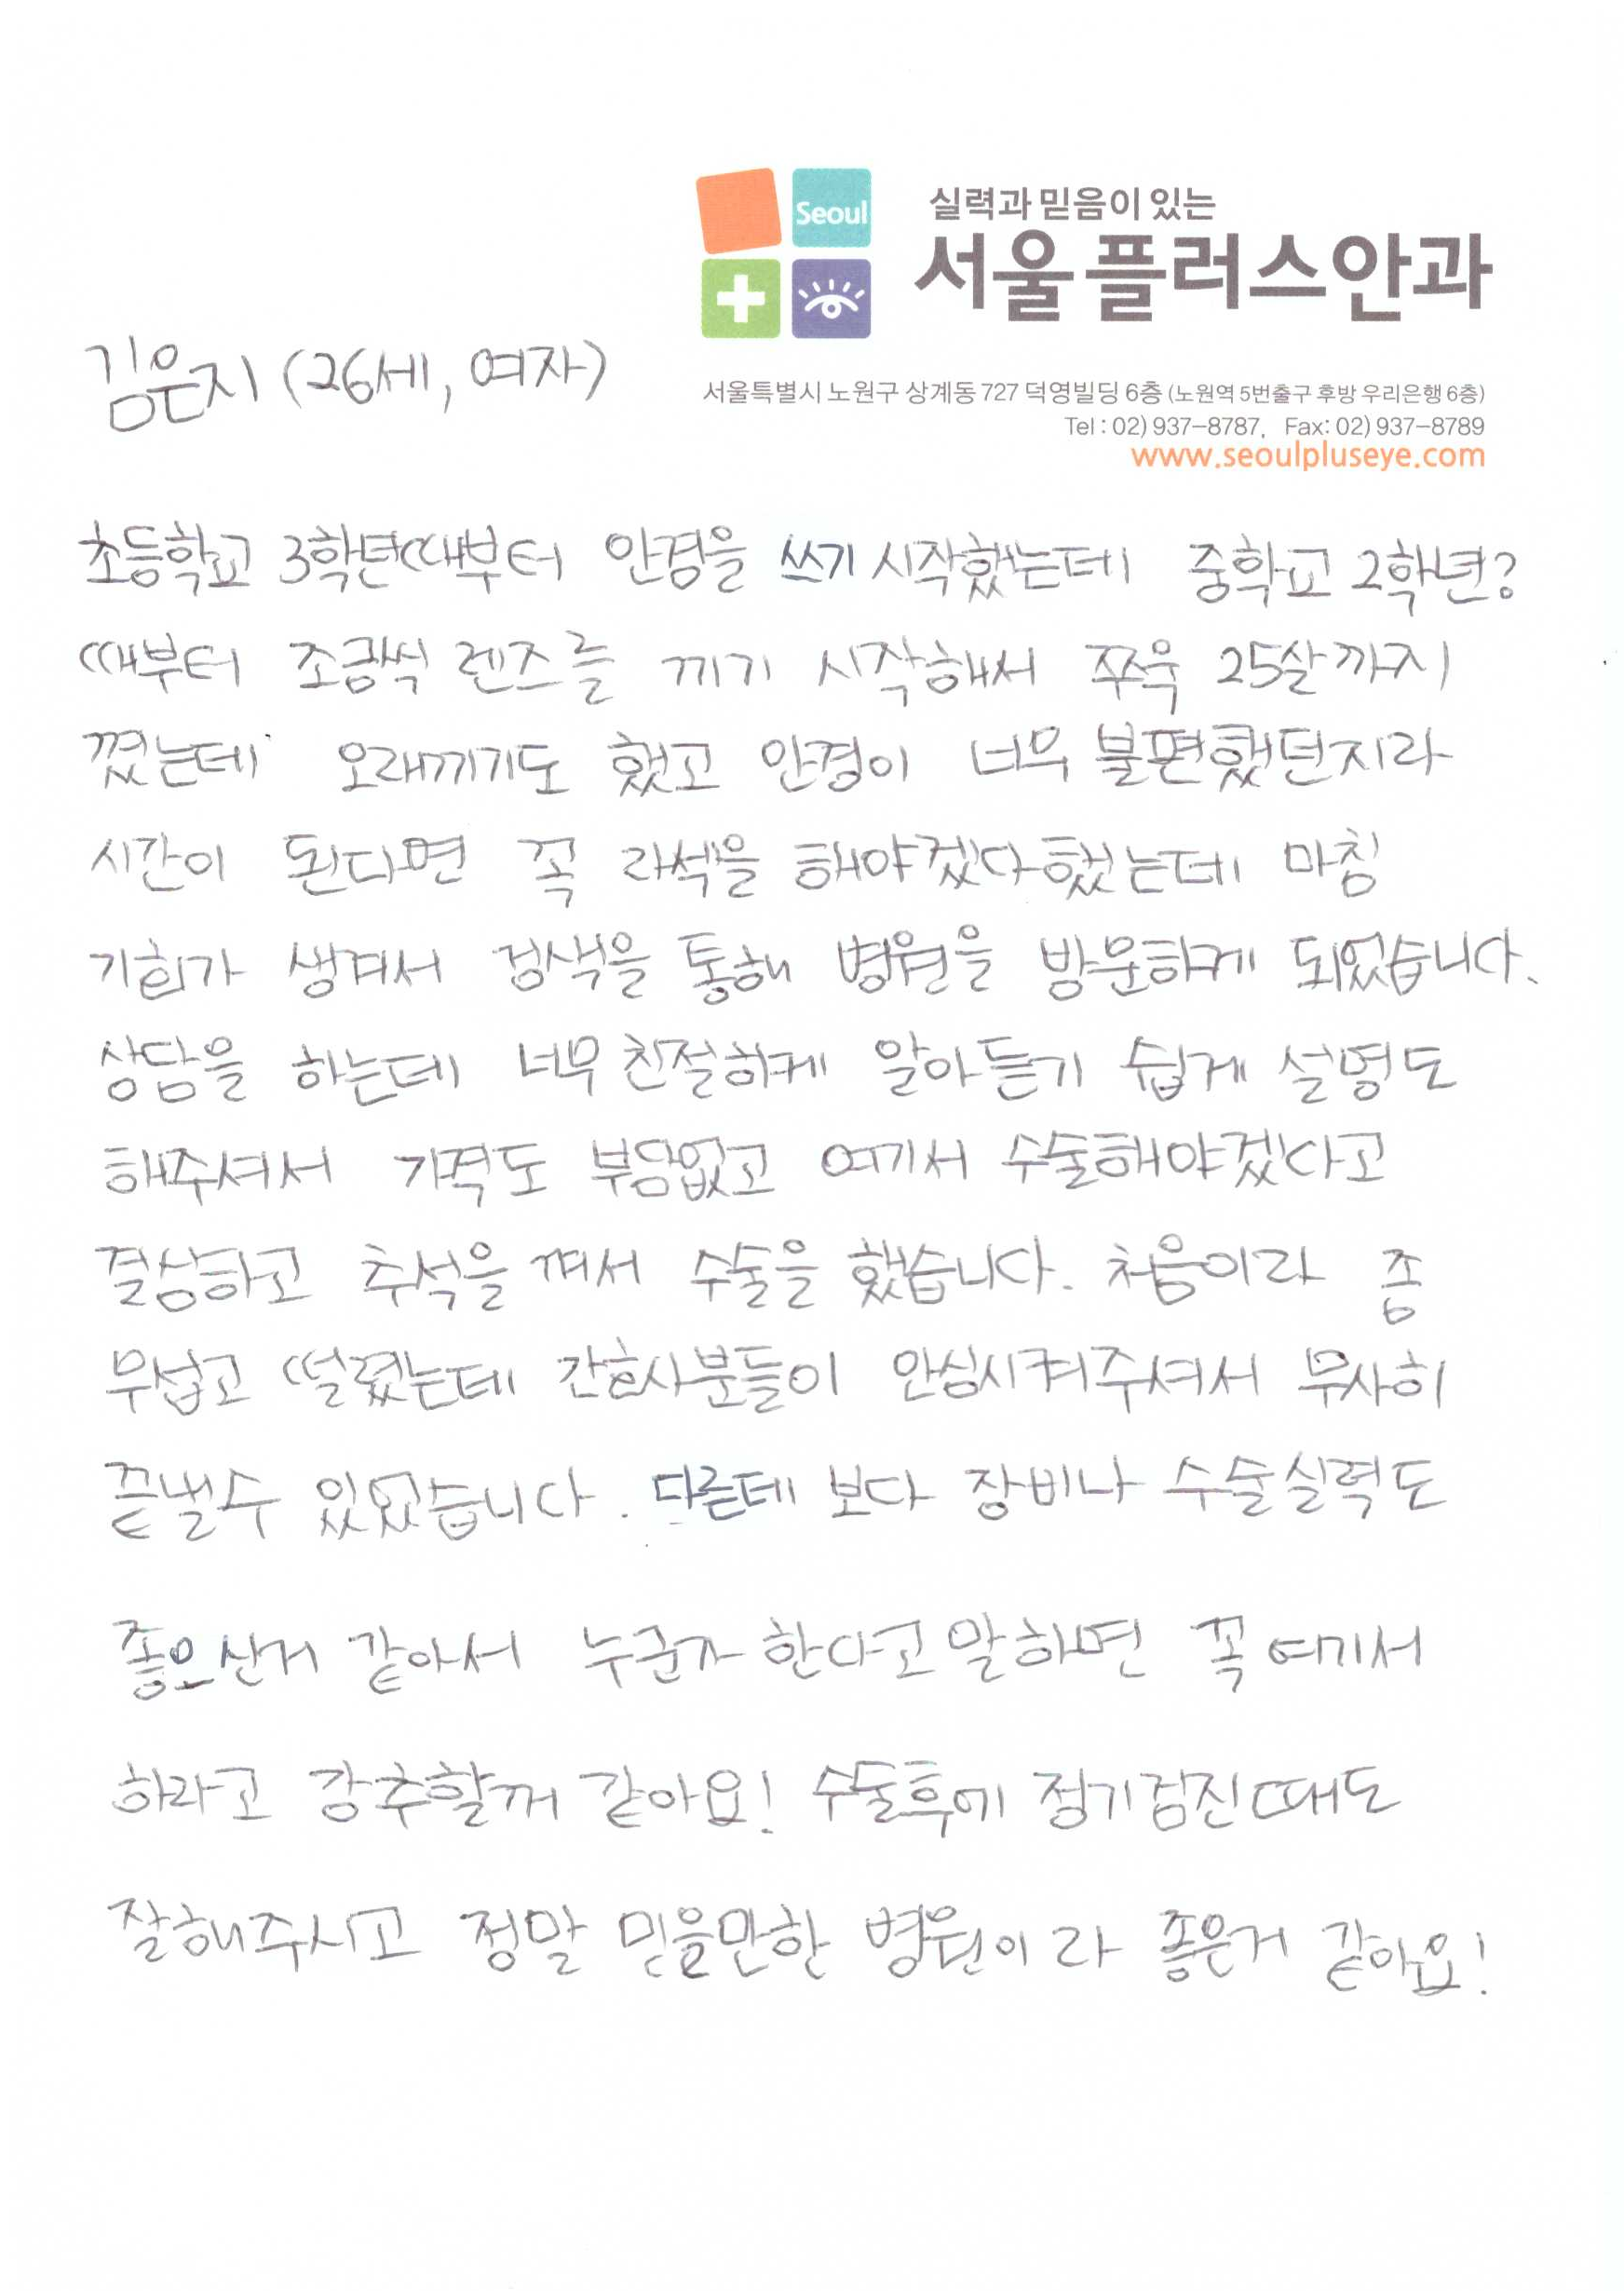 Seoul
실력과 믿음이 있는
서울플러스안과
김은지 (26세, 여자)
서울특별시 노원구 상계동 727 덕영빌딩 6층 (노원역 5번출구 후방 우리은행 6층)
Tel : 02) 937-8787, Fax: 02) 937-8789
www.seoulpluseye.com
초등학교 3학년때부터 안경을 쓰기 시작했는데 중학교 2학년?
때부터 조금씩 렌즈를 끼기 시작해서 쭈욱 25살까지
꼈는데 오래끼기도 했고 안경이 너무 불편했던지라
시간이 된다면 꼭 라섹을 해야겠다했는데 마침
기회가 생겨서 검색을 통해 병원을 방문하게 되었습니다.
상담을 하는데 너무 친절하게 알아듣기 쉽게 설명도
해주셔서 가격도 부담없고 여기서 수술해야겠다고
결심하고 추석을 껴서 수술을 했습니다. 처음이라 좀
무섭고 떨렸는데 간호사분들이 안심시켜주셔서 무사히
끝낼수 있었습니다. 다른데 보다 장비나 수술실력도
좋으신거 같아서 누군가 한다고 말하면 꼭 여기서
하라고 강추할꺼 같아요! 수술후에 정기검진때도
잘해주시고 정말 믿을만한 병원이라 좋은거 같아요!